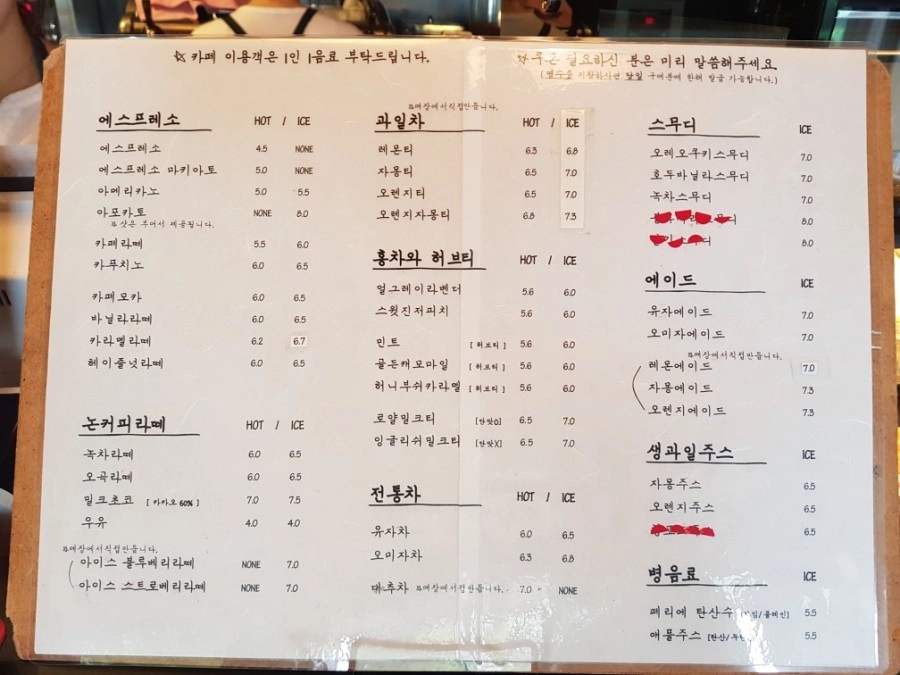 ☆ 카페 이용객은 1인 1음료 부탁드립니다.
필요하신 분은 미리 말씀해주세요.
에스프레소 HOT / ICE
에스프레소 4.5 NONE
에스프레소 마키아토 5.0 NONE
아메리카노 5.0 5.5
아포카토 NONE 8.0
※샷은 부어서 제공됩니다.
카페라떼 5.5 6.0
카푸치노 6.0 6.5
카페모카 6.0 6.5
바닐라라떼 6.0 6.5
카라멜라떼 6.2 6.7
헤이즐넛라떼 6.0 6.5
논커피라떼 HOT / ICE
녹차라떼 6.0 6.5
오곡라떼 6.0 6.5
밀크초코 [ 카카오 60% ] 7.0 7.5
우유 4.0 4.0
※매장에서직접만듭니다.
아이스 블루베리라떼 NONE 7.0
아이스 스트로베리라떼 NONE 7.0
※매장에서직접만듭니다.
과일차 HOT / ICE
레몬티 6.3 6.8
자몽티 6.5 7.0
오렌지티 6.5 7.0
오렌지자몽티 6.8 7.3
홍차와 허브티 HOT / ICE
얼그레이라벤더 5.6 6.0
스윗진저피치 5.6 6.0
민트 [ 허브티 ] 5.6 6.0
골든캐모마일 [ 허브티 ] 5.6 6.0
허니부쉬카라멜 [ 허브티 ] 5.6 6.0
로얄밀크티 [단맛O] 6.5 7.0
잉글리쉬밀크티 [단맛X] 6.5 7.0
전통차 HOT / ICE
유자차 6.0 6.5
오미자차 6.3 6.8
대추차 ※매장에서직접만듭니다. 7.0 NONE
스무디 ICE
오레오쿠키스무디 7.0
호두바닐라스무디 7.0
녹차스무디 7.0
8.0
8.0
에이드 ICE
유자에이드 7.0
오미자에이드 7.0
※매장에서직접만듭니다.
레몬에이드 7.0
자몽에이드 7.3
오렌지에이드 7.3
생과일주스 ICE
자몽주스 6.5
오렌지주스 6.5
6.5
병음료 ICE
페리에 탄산수 5.5
애플주스 5.5